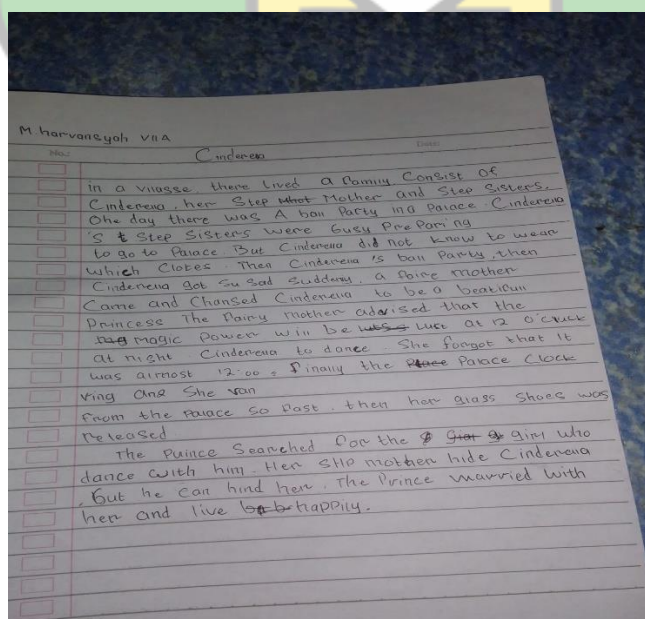 M. harvansyah VII A
No.: Date:
Cinderena
in a vilasse, there lived a family Consist of
Cinderena, her Step what Mother and Step Sisters.
One day there was A ball Party in a Parace. Cinderena
's t Step Sisters were Busy PreParing
to go to Parace. But Cinderena did not know to wear
which Clotes. Then Cinderena 's ball Party, then
Cinderena got su sad Suddeny, a faire mother
Came and Chansed Cinderena to be a beatifull
Princess The fairy mother advised that the
mag magic Power will be luts Lust at 12 o'cruck
at night Cinderena to dance. She forgot that it
was airmost 12:00. Finany the Place Palace Clock
ring and She ran
from the Parace so Fast. then her glass shoes was
released
The Puince Searched for the girl who
dance with him. Her step mother hide Cinderena
, But he can hind her. The Prince married with
her and live be happily.